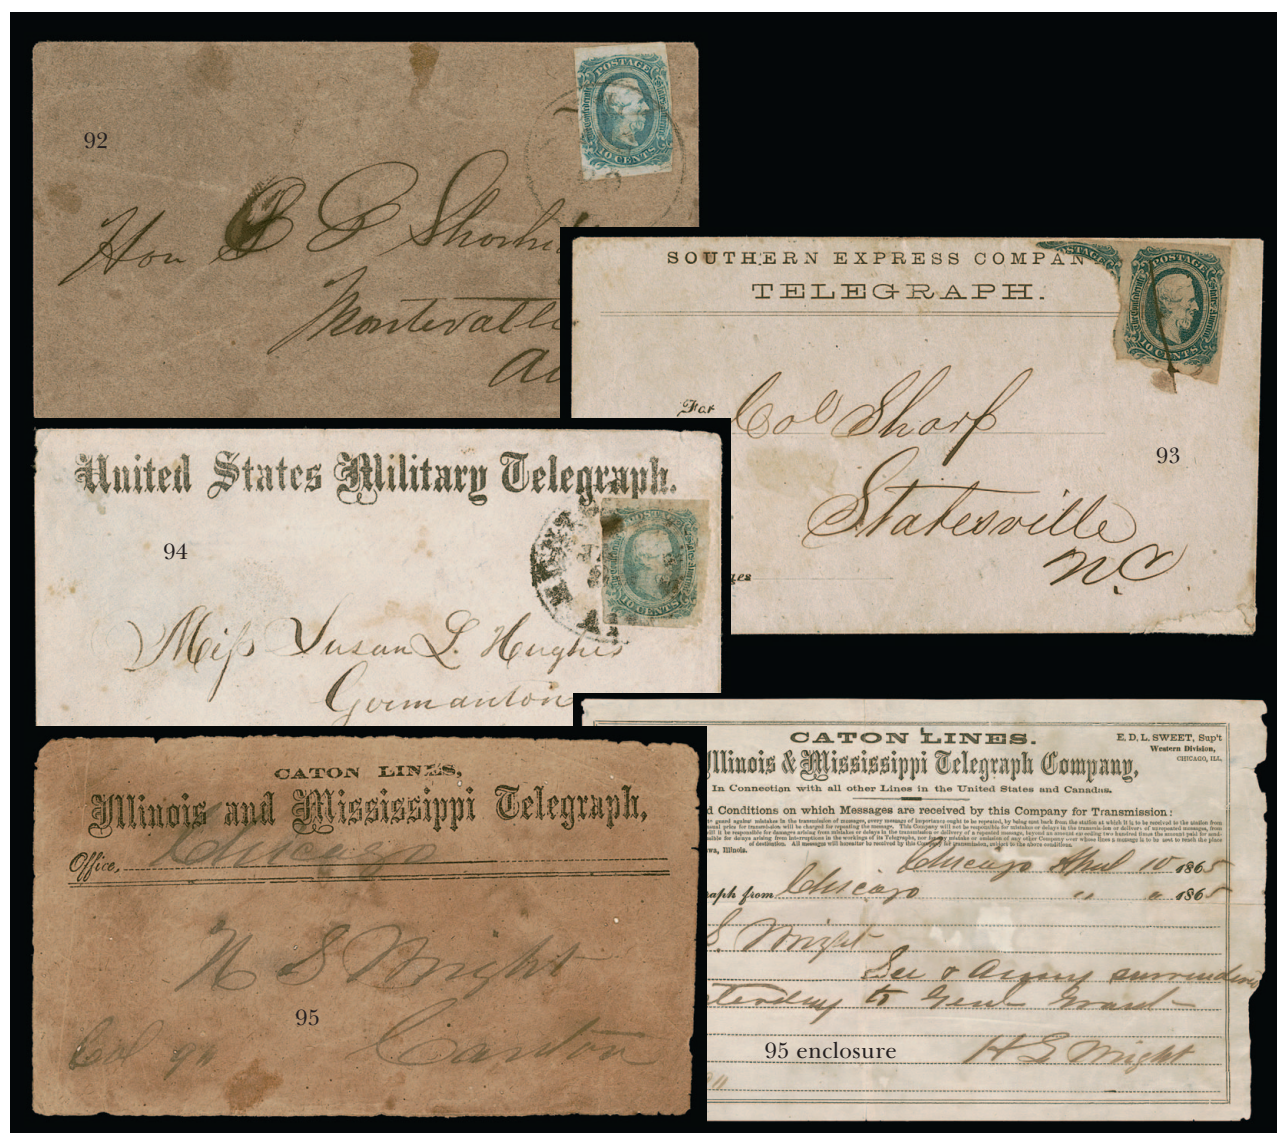 92
POSTAGE
10 CENTS
Hon
Montevall
SOUTHERN EXPRESS COMPAN
TELEGRAPH.
POSTAGE
10 CENTS
For
Col Sharp
93
Statesville
N.C
United States Military Telegraph.
94
POSTAGE
10 CENTS
Miss Susan L. Hughes
Germanton
CATON LINES,
Illinois and Mississippi Telegraph,
Office, Chicago
N S Wright
95
Col 9 Canton
CATON LINES.
E. D. L. SWEET, Sup't
Western Division,
CHICAGO, ILL.
Illinois & Mississippi Telegraph Company,
In Connection with all other Lines in the United States and Canadas.
d Conditions on which Messages are received by this Company for Transmission:
Chicago April 10 1865
raph from Chicago " " 1865
S. Wright
Lee & Army surrendered
terday to Genl Grant
95 enclosure
H S Wright